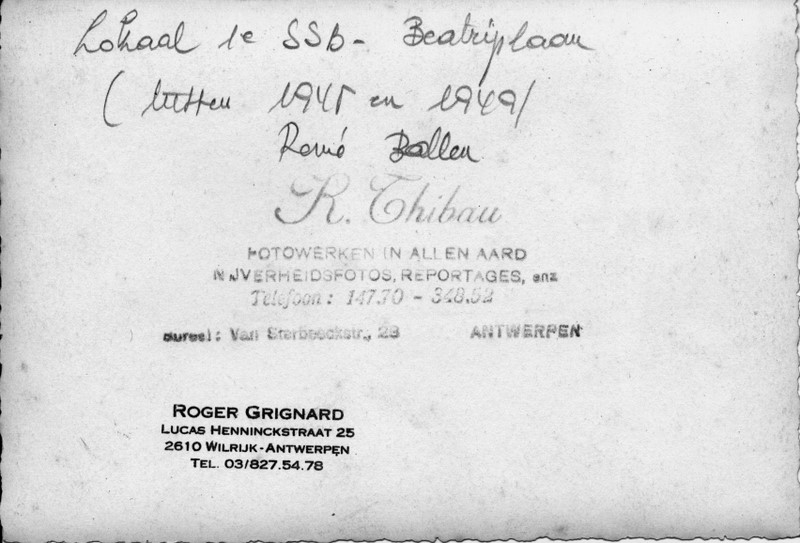 Lokaal 1e SSB - Beatrijslaan
(tussen 1945 en 1949)
René Ballen
R. Thibau
FOTOWERKEN IN ALLEN AARD
NIJVERHEIDSFOTOS, REPORTAGES, enz
Telefoon: 147.70 - 348.52
Bureel: Van Sterbeeckstr., 28 ANTWERPEN
ROGER GRIGNARD
LUCAS HENNINCKSTRAAT 25
2610 WILRIJK-ANTWERPEN
TEL. 03/827.54.78